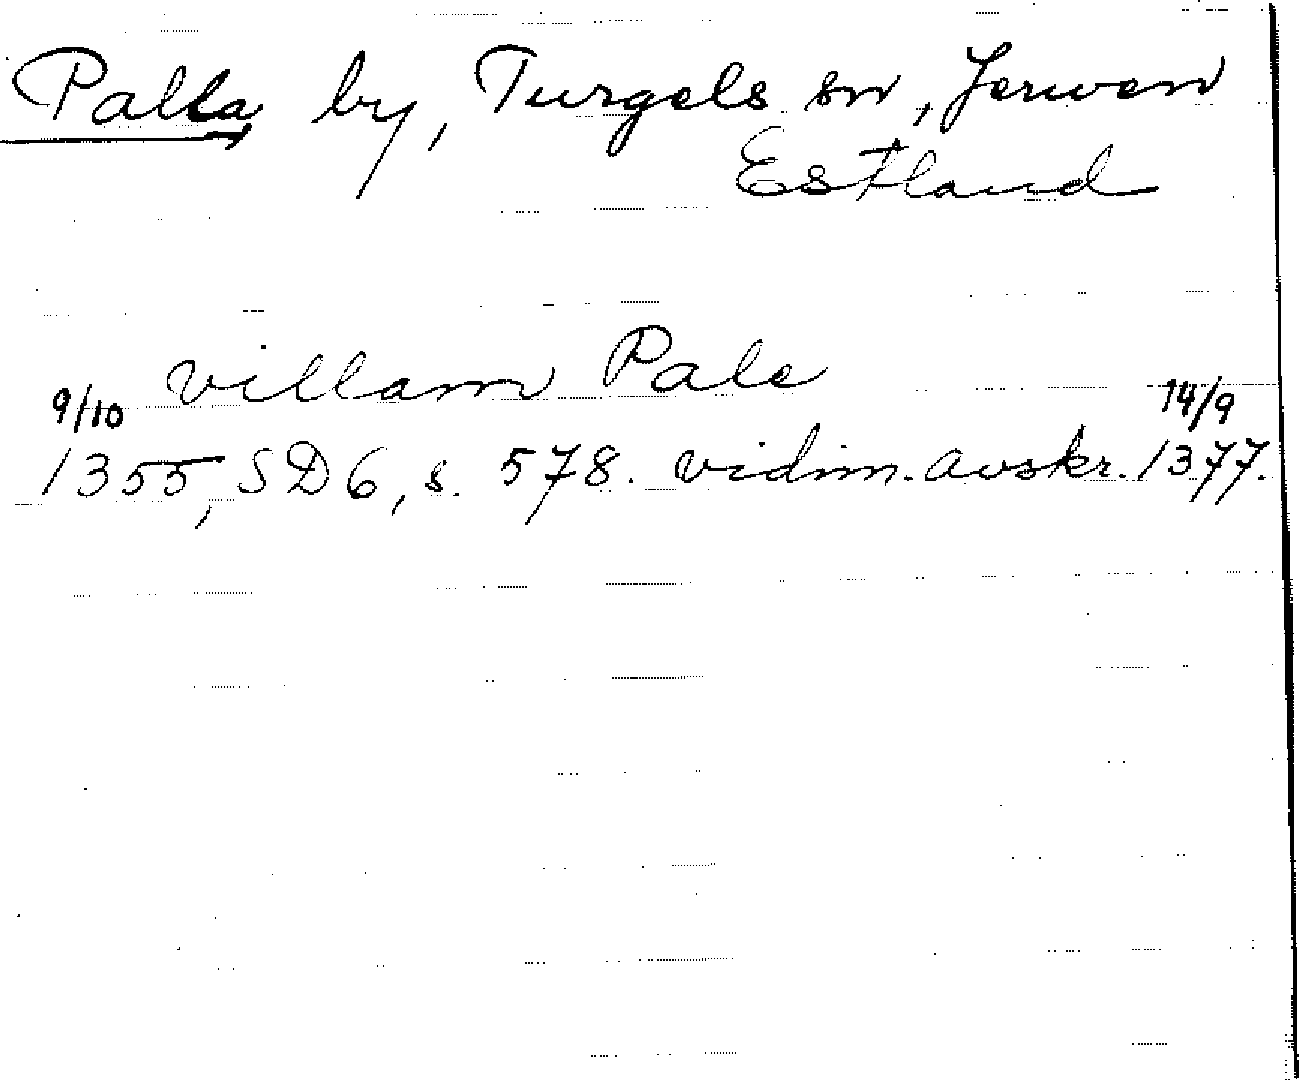 Palla by, Turgels sn, Jerwen
Estland
villam Pale
9/10 14/9
1355, SD6, s. 578. vidim. avskr. 1377.